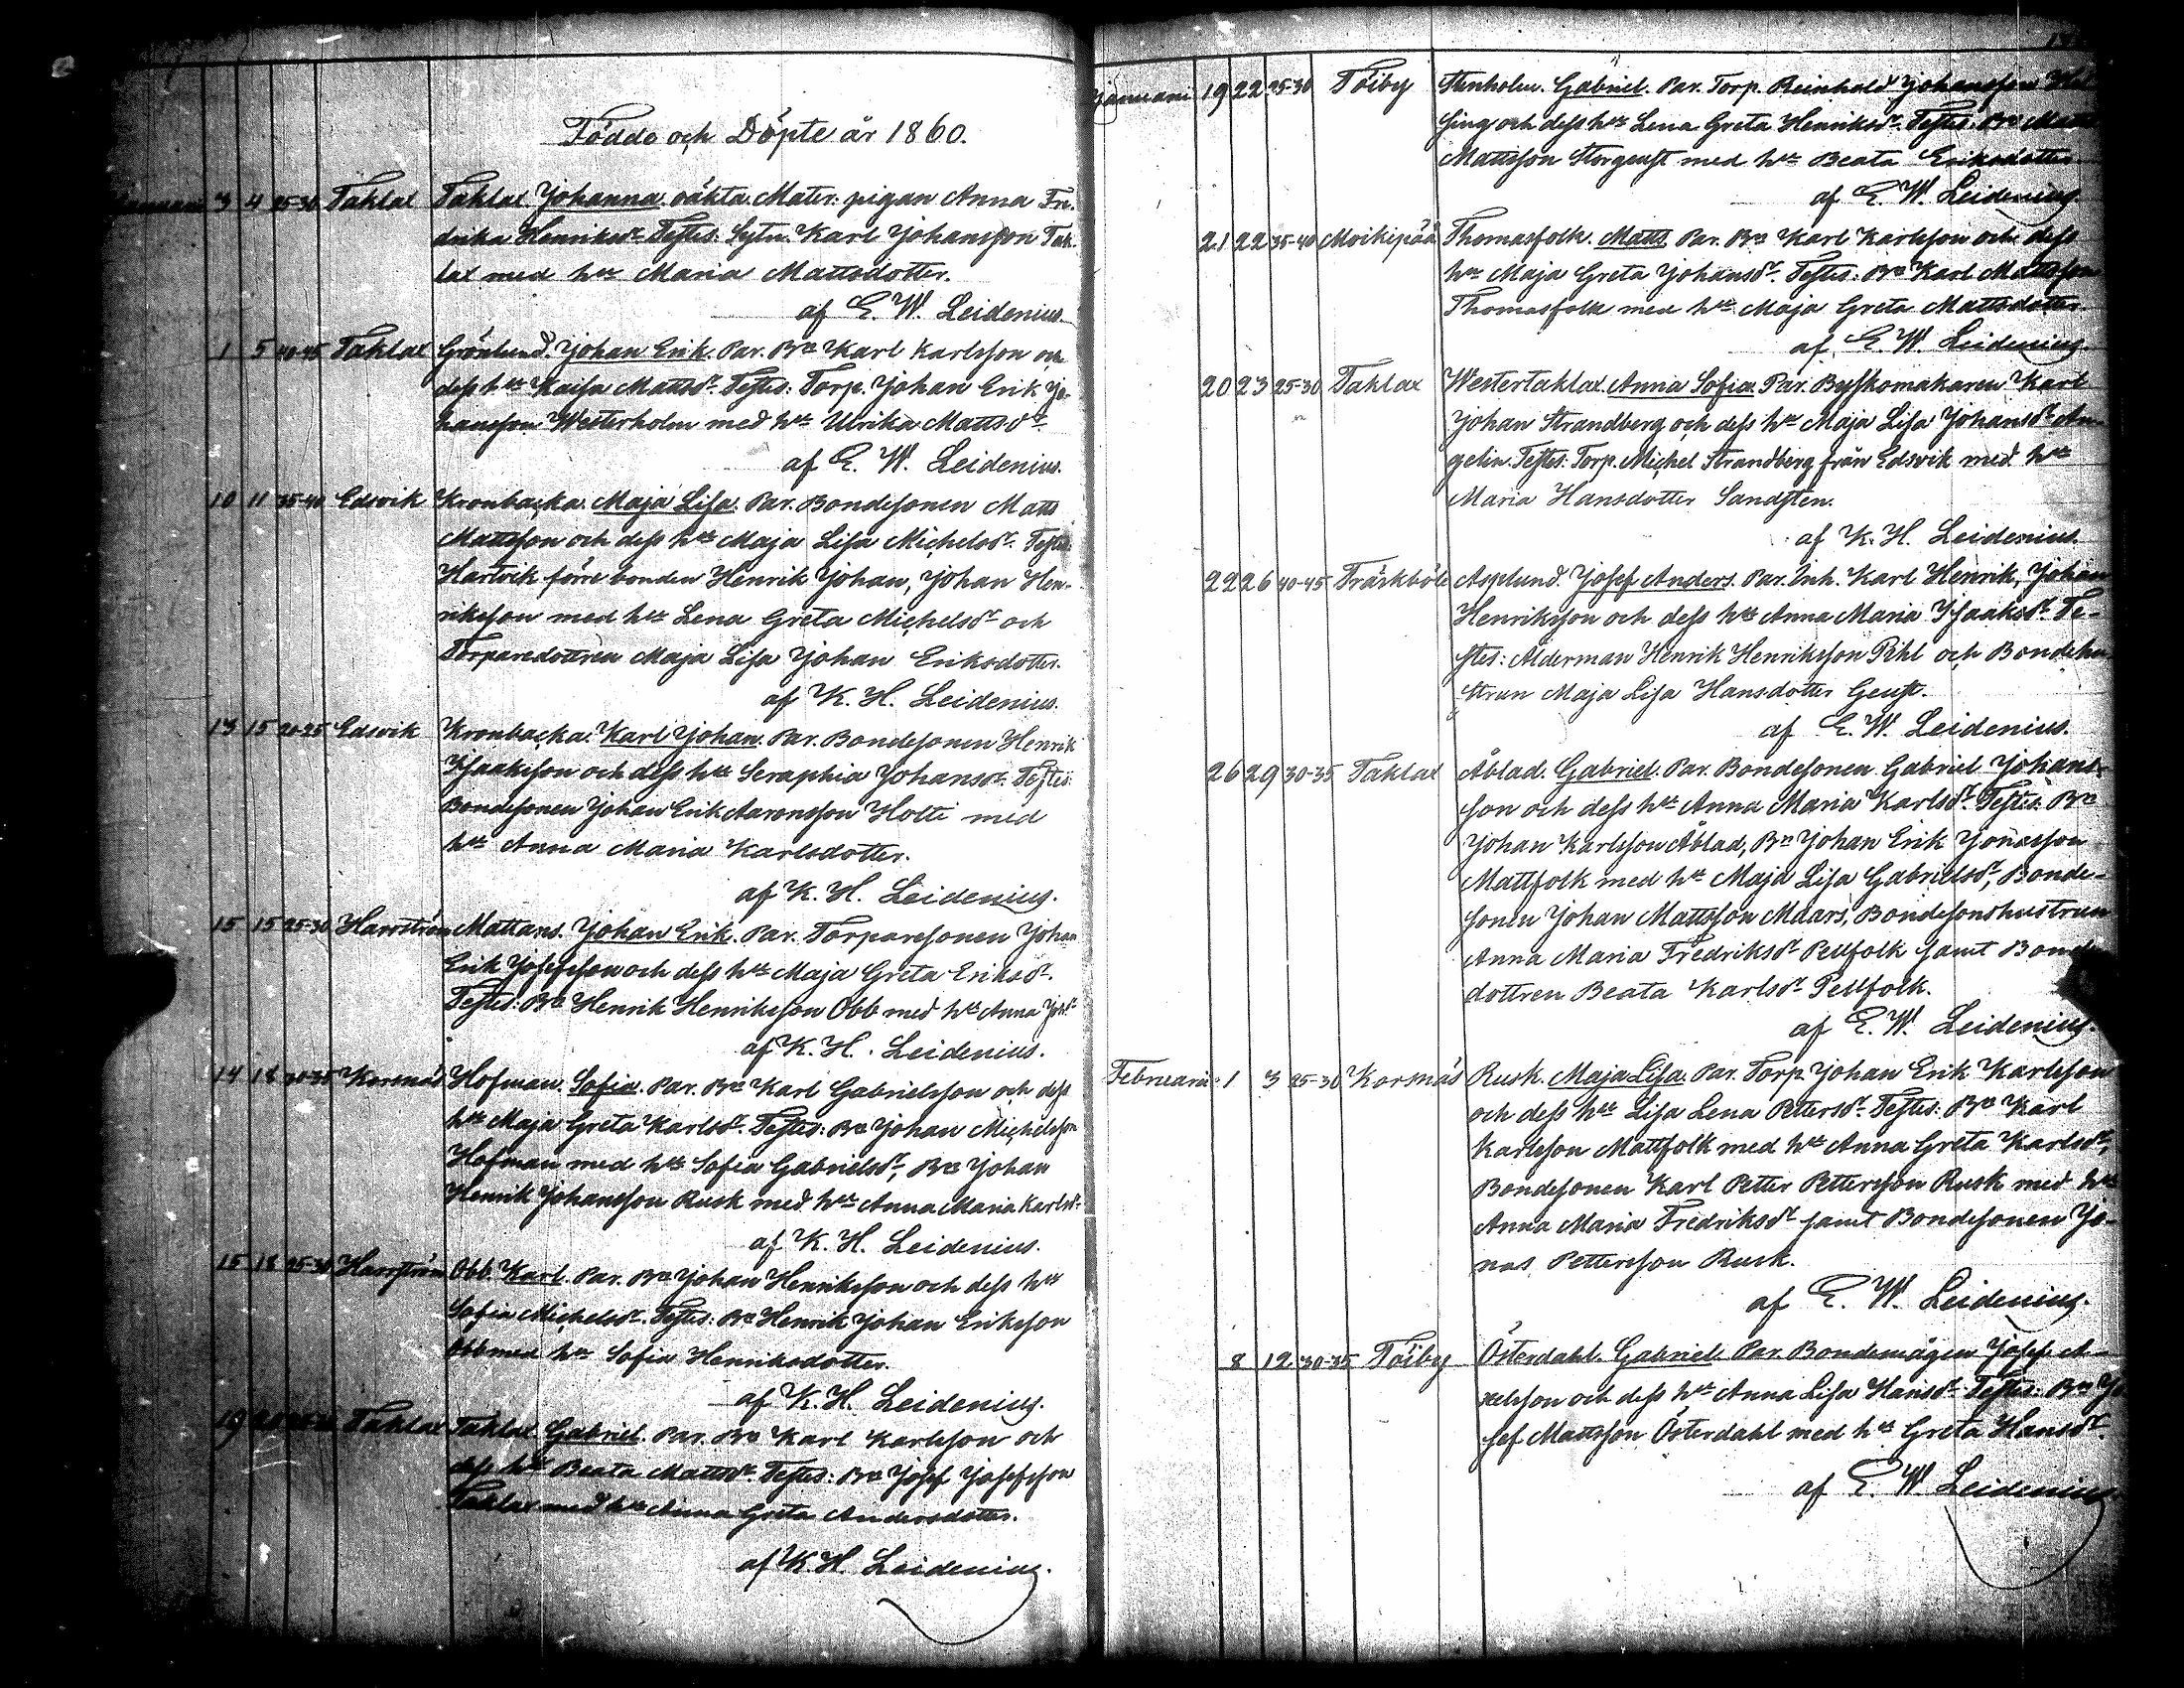 Födde och Döpte år 1860.
Januari 3 4 25-30 Taklax Taklax Johanna oäkta. Mater: pigan Anna Fre-
drika Henriksdr. Testes: Sytn. Karl Johansson Tak-
lax med hu Maria Mattsdotter.
af E. W. Leidenius.
1 5 40-45 Taklax Grönlund. Johan Erik. Par. Bn Karl Karlsson och
dess hu Kajsa Mattsdr. Testes: Torp. Johan Erik Jo-
hansson Westerholm med hu Ulrika Mattsdr.
af E. W. Leidenius.
10 11 35-40 Edsvik Kronbacka. Maja Lisa. Par. Bondesonen Matts
Mattsson och dess hu Maja Lisa Michelsdr. Testes:
Hartvik förre bonden Henrik Johan, Johan Hen-
riksson med hu Lena Greta Michelsdr och
Torparedottren Maja Lisa Johan Eriksdotter.
af K. H. Leidenius.
13 15 20-25 Edsvik Kronbacka. Karl Johan. Par. Bondesonen Henrik
Isaaksson och dess hu Seraphia Johansdr. Testes:
Bondesonen Johan Erik Aaronsson Holti med
hu Anna Maria Karlsdotter.
af K. H. Leidenius.
15 15 25-30 Harrström Mattans. Johan Erik. Par. Torparesonen Johan
Erik Josefsson och dess hu Maja Greta Eriksdr.
Testes: Bn Henrik Henriksson Obb med hu Anna Johdr
af K. H. Leidenius.
14 18 30-35 Korsnäs Hofman. Sofia. Par. Bn Karl Gabrielsson och dess
hu Maja Greta Karlsdr. Testes: Bn Johan Michelsson
Hofman med hu Sofia Gabrielsdr, Bn Johan
Henrik Johansson Rusk med hu Anna Maria Karlsdr.
af K. H. Leidenius.
15 18 25-30 Harrström Obb. Karl. Par. Bn Johan Henriksson och dess hu
Sofia Michelsdr. Testes: Bn Henrik Johan Eriksson
Obb med hu Sofia Henriksdotter.
af K. H. Leidenius.
19 Taklax Taklax. Gabriel. Par. Bn Karl Karlsson och
dess hu Beata Mattsdr. Testes: Bn Josef Josefsson
Taklax med hu Anna Greta Andersdotter.
af K. H. Leidenius.
Januari 19 22 25-30 Töiby Stenholm. Gabriel. Par. Torp. Reinhold Johansson
sing och dess hu Lena Greta Henriksdr. Testes: Bn Matts
Mattsson Storgeust med hu Beata Eriksdotter
af E. W. Leidenius.
21 22 35-40 Moikipää Thomasfolk. Matts. Par. Bn Karl Karlsson och dess
hu Maja Greta Johansdr. Testes: Bn Karl Mattsson
Thomasfolk med hu Maja Greta Mattsdotter.
af E. W. Leidenius.
20 23 25-30 Taklax Westertaklax. Anna Sofia. Par. Byskomakaren Karl
Johan Strandberg och dess hu Maja Lisa Johansdr An-
gelin. Testes: Torp. Michel Strandberg från Edsvik med hu
Maria Hansdotter Sandsten.
af K. H. Leidenius.
22 26 40-45 Träskböle Asplund. Josef Anders. Par. Inh. Karl Henrik, Johan
Henriksson och dess hu Anna Maria Isaaksdr. Te-
stes: Alderman Henrik Henriksson Pihl och Bondehu-
strun Maja Lisa Hansdotter Geust.
af E. W. Leidenius.
26 29 30-35 Taklax Åblad. Gabriel. Par. Bondesonen Gabriel Johans-
son och dess hu Anna Maria Karlsdr. Testes: Bn
Johan Karlsson Åblad, Bn Johan Erik Jonasson
Mattfolk med hu Maja Lisa Gabrielsdr, Bonde-
sonen Johan Mattsson Maars, Bondesonshustrun
Anna Maria Fredriksdr Pellfolk samt Bonde
dottren Beata Karlsdr Pellfolk.
af E. W. Leidenius.
Februari 1 3 25-30 Korsnäs Rusk. Maja Lisa. Par. Torp. Johan Erik Karlsson
och dess hu Lisa Lena Pettersdr. Testes: Bn Karl
Karlsson Mattfolk med hu Anna Greta Karlsdr,
Bondesonen Karl Petter Pettersson Rusk med hu
Anna Maria Fredriksdr samt Bondesonen Jo-
nas Pettersson Rusk.
af E. W. Leidenius.
8 12 30-35 Töiby Österdahl. Gabriel. Par. Bondemågen Josef A-
xelsson och dess hu Anna Lisa Hansdr. Testes: Bn Jo
sef Mattsson Österdahl med hu Greta Hansdr.
af E. W. Leidenius.